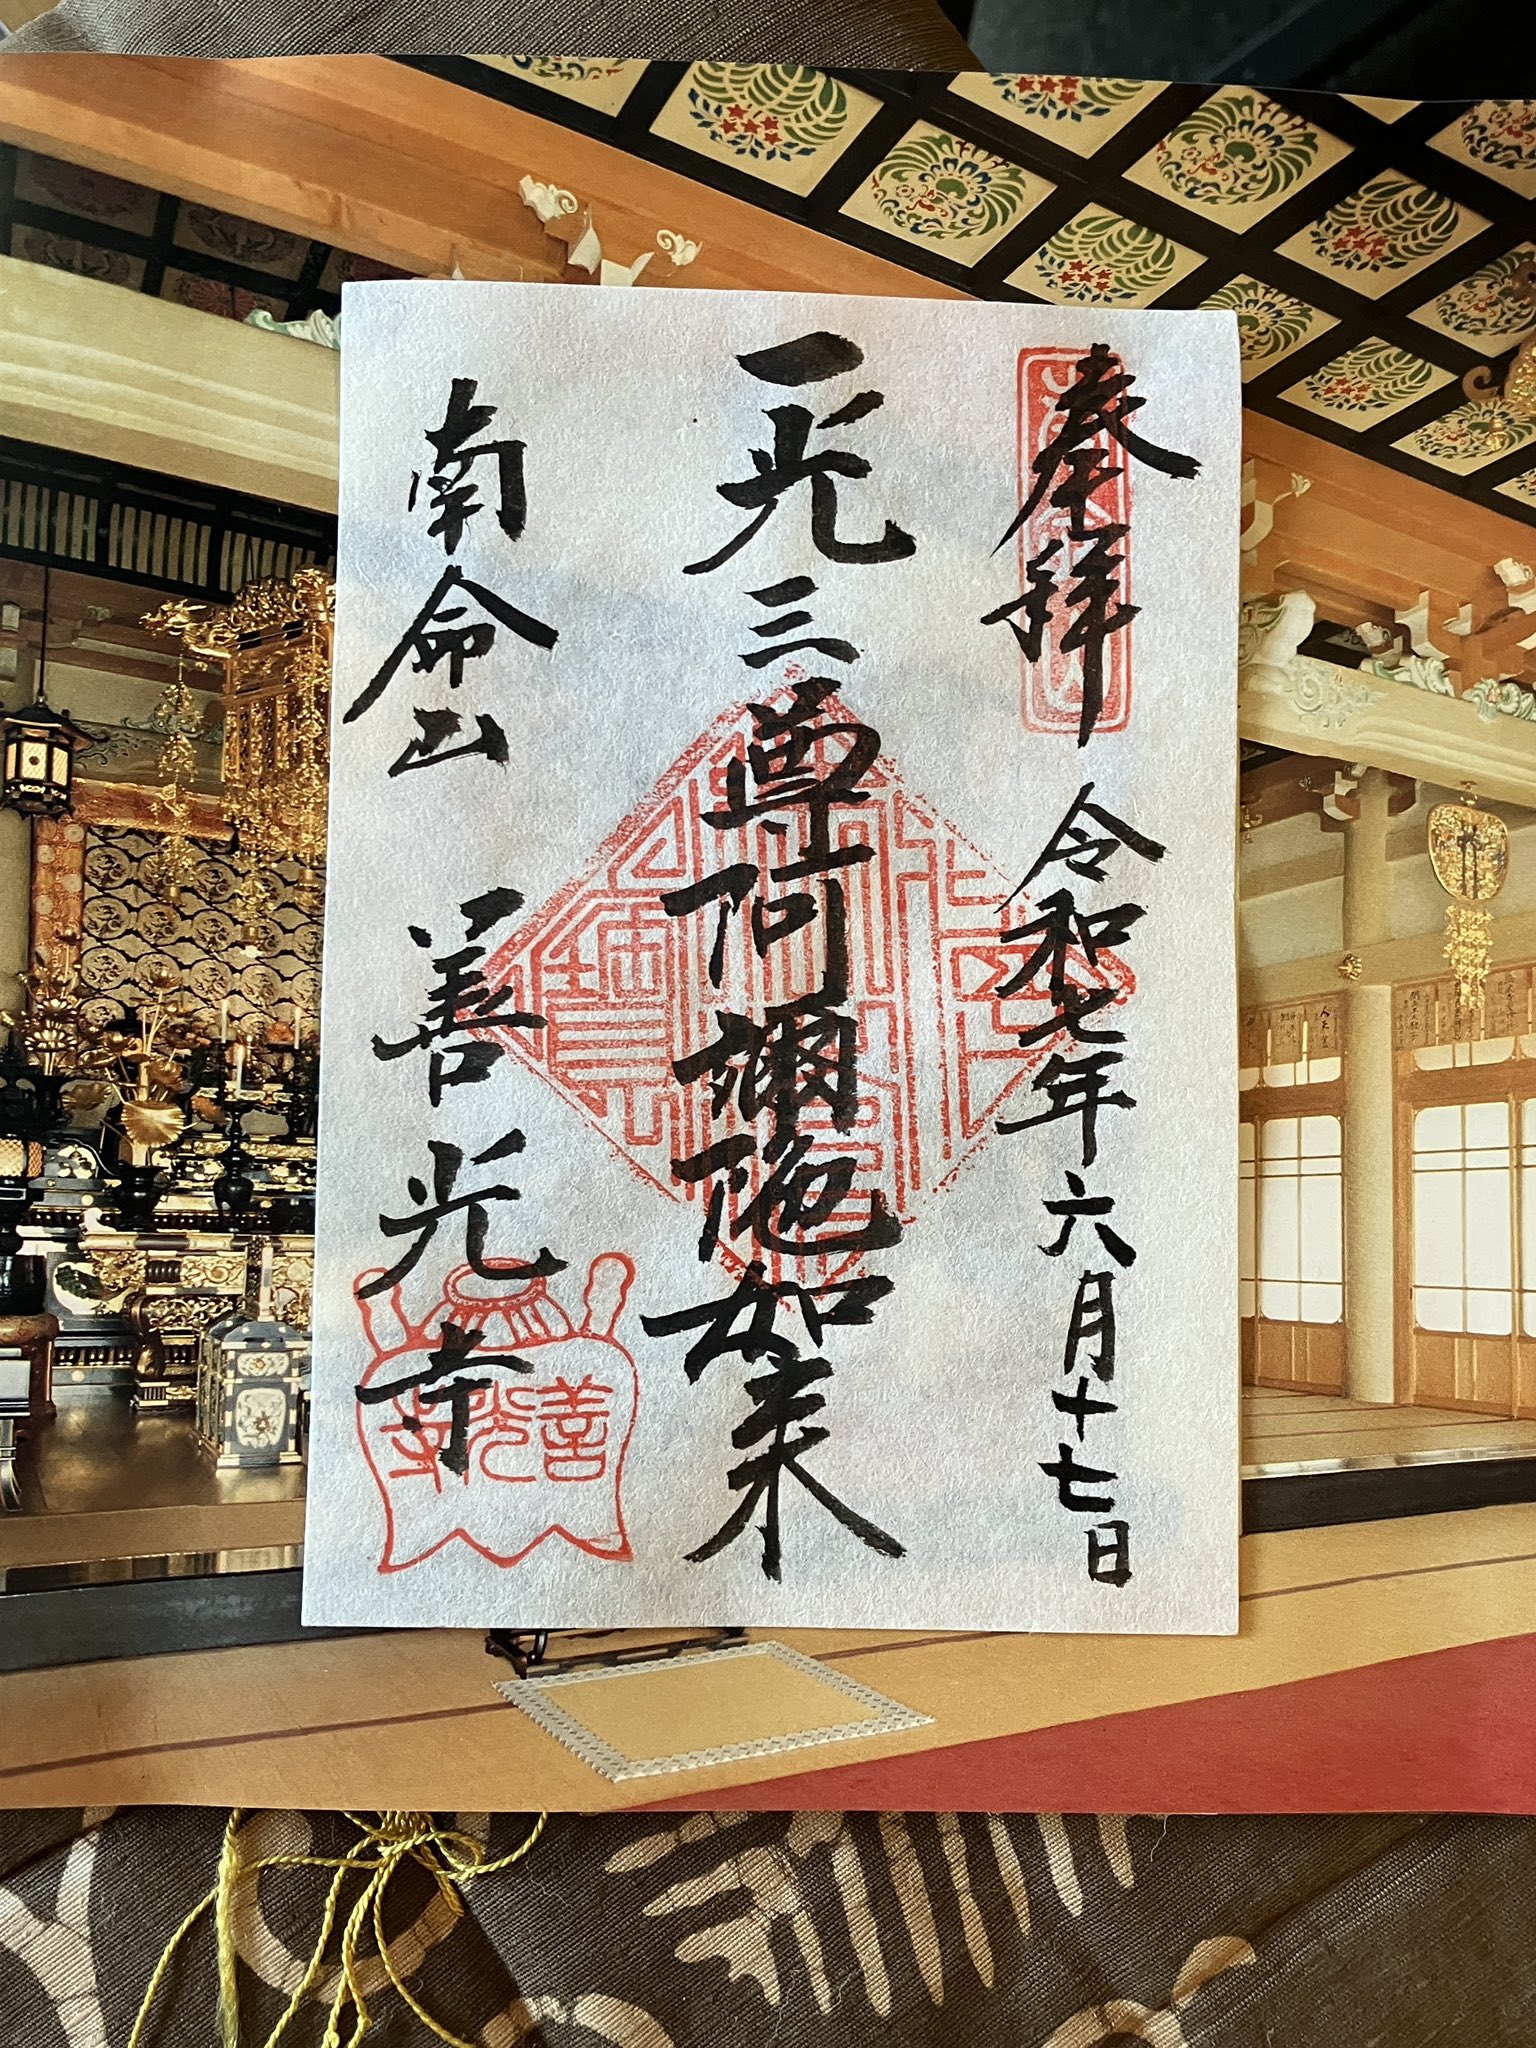 奉拝 令和七年六月十七日
一光三尊阿彌陁如来
南命山 善光寺
善光寺